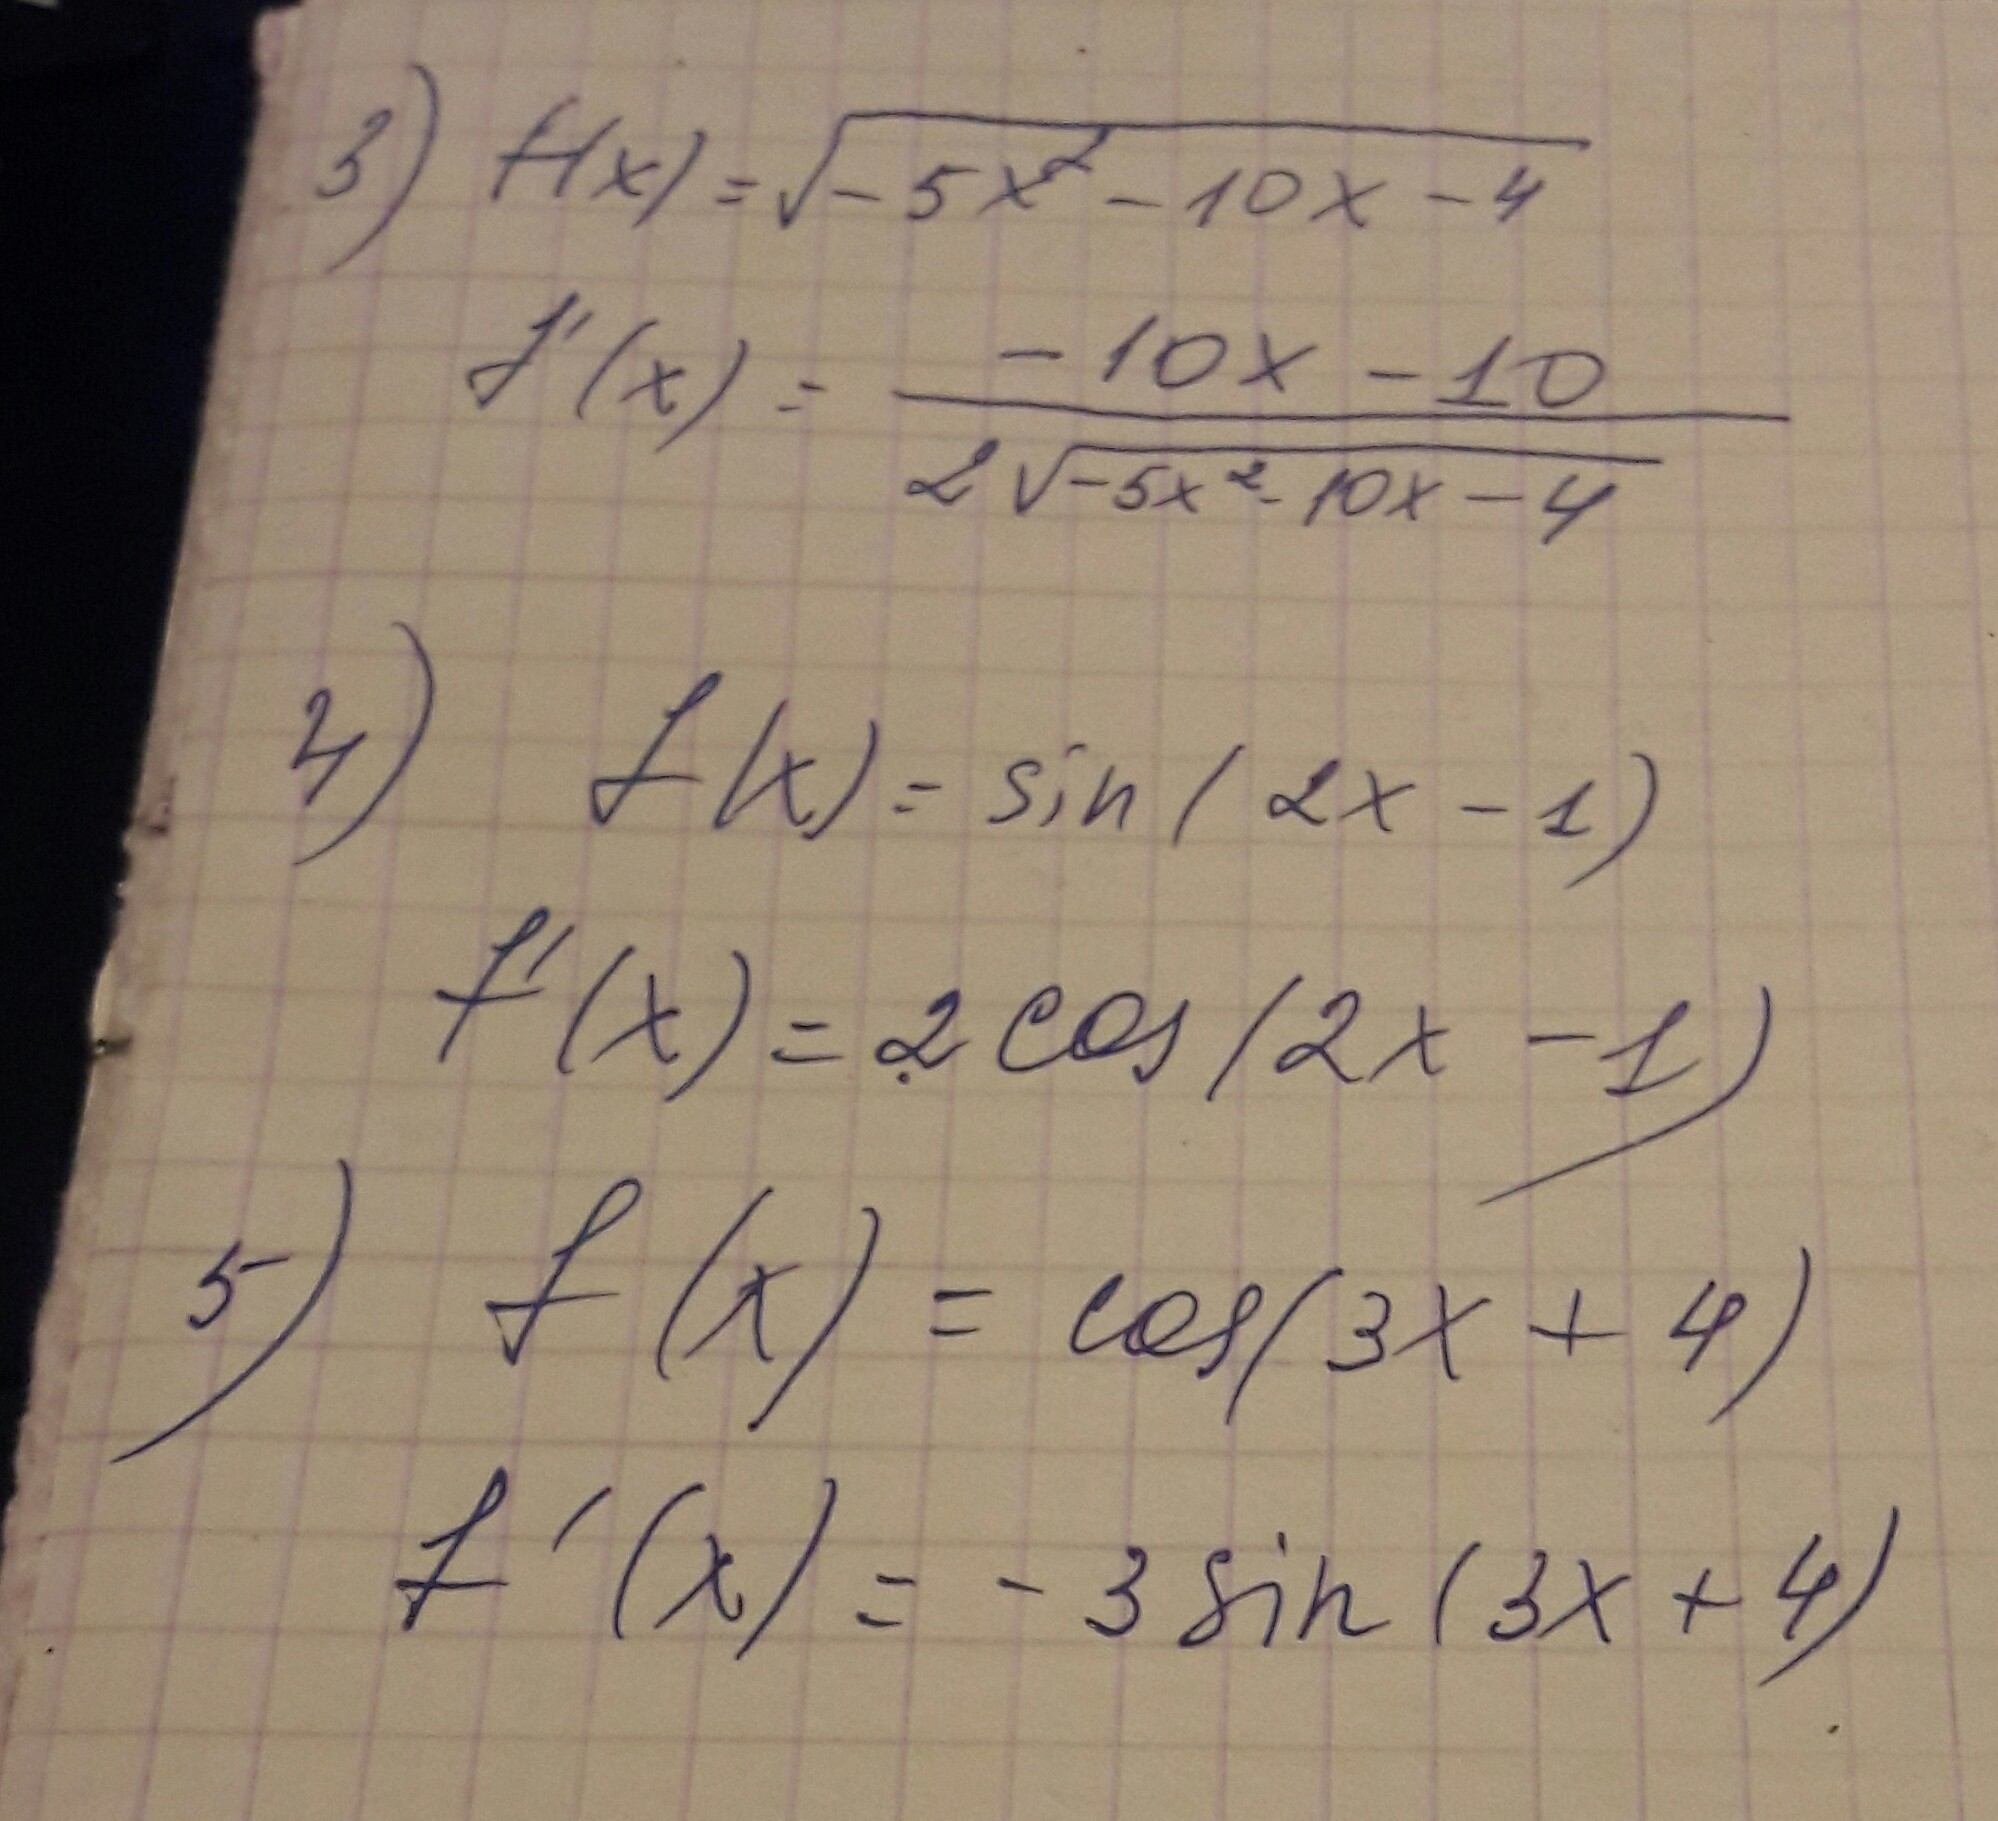 3) f(x) = √(-5x² - 10x - 4)
f'(x) = (-10x - 10) / (2√(-5x² - 10x - 4))
4) f(x) = sin(2x - 1)
f'(x) = 2 cos(2x - 1)
5) f(x) = cos(3x + 4)
f'(x) = - 3 sin(3x + 4)